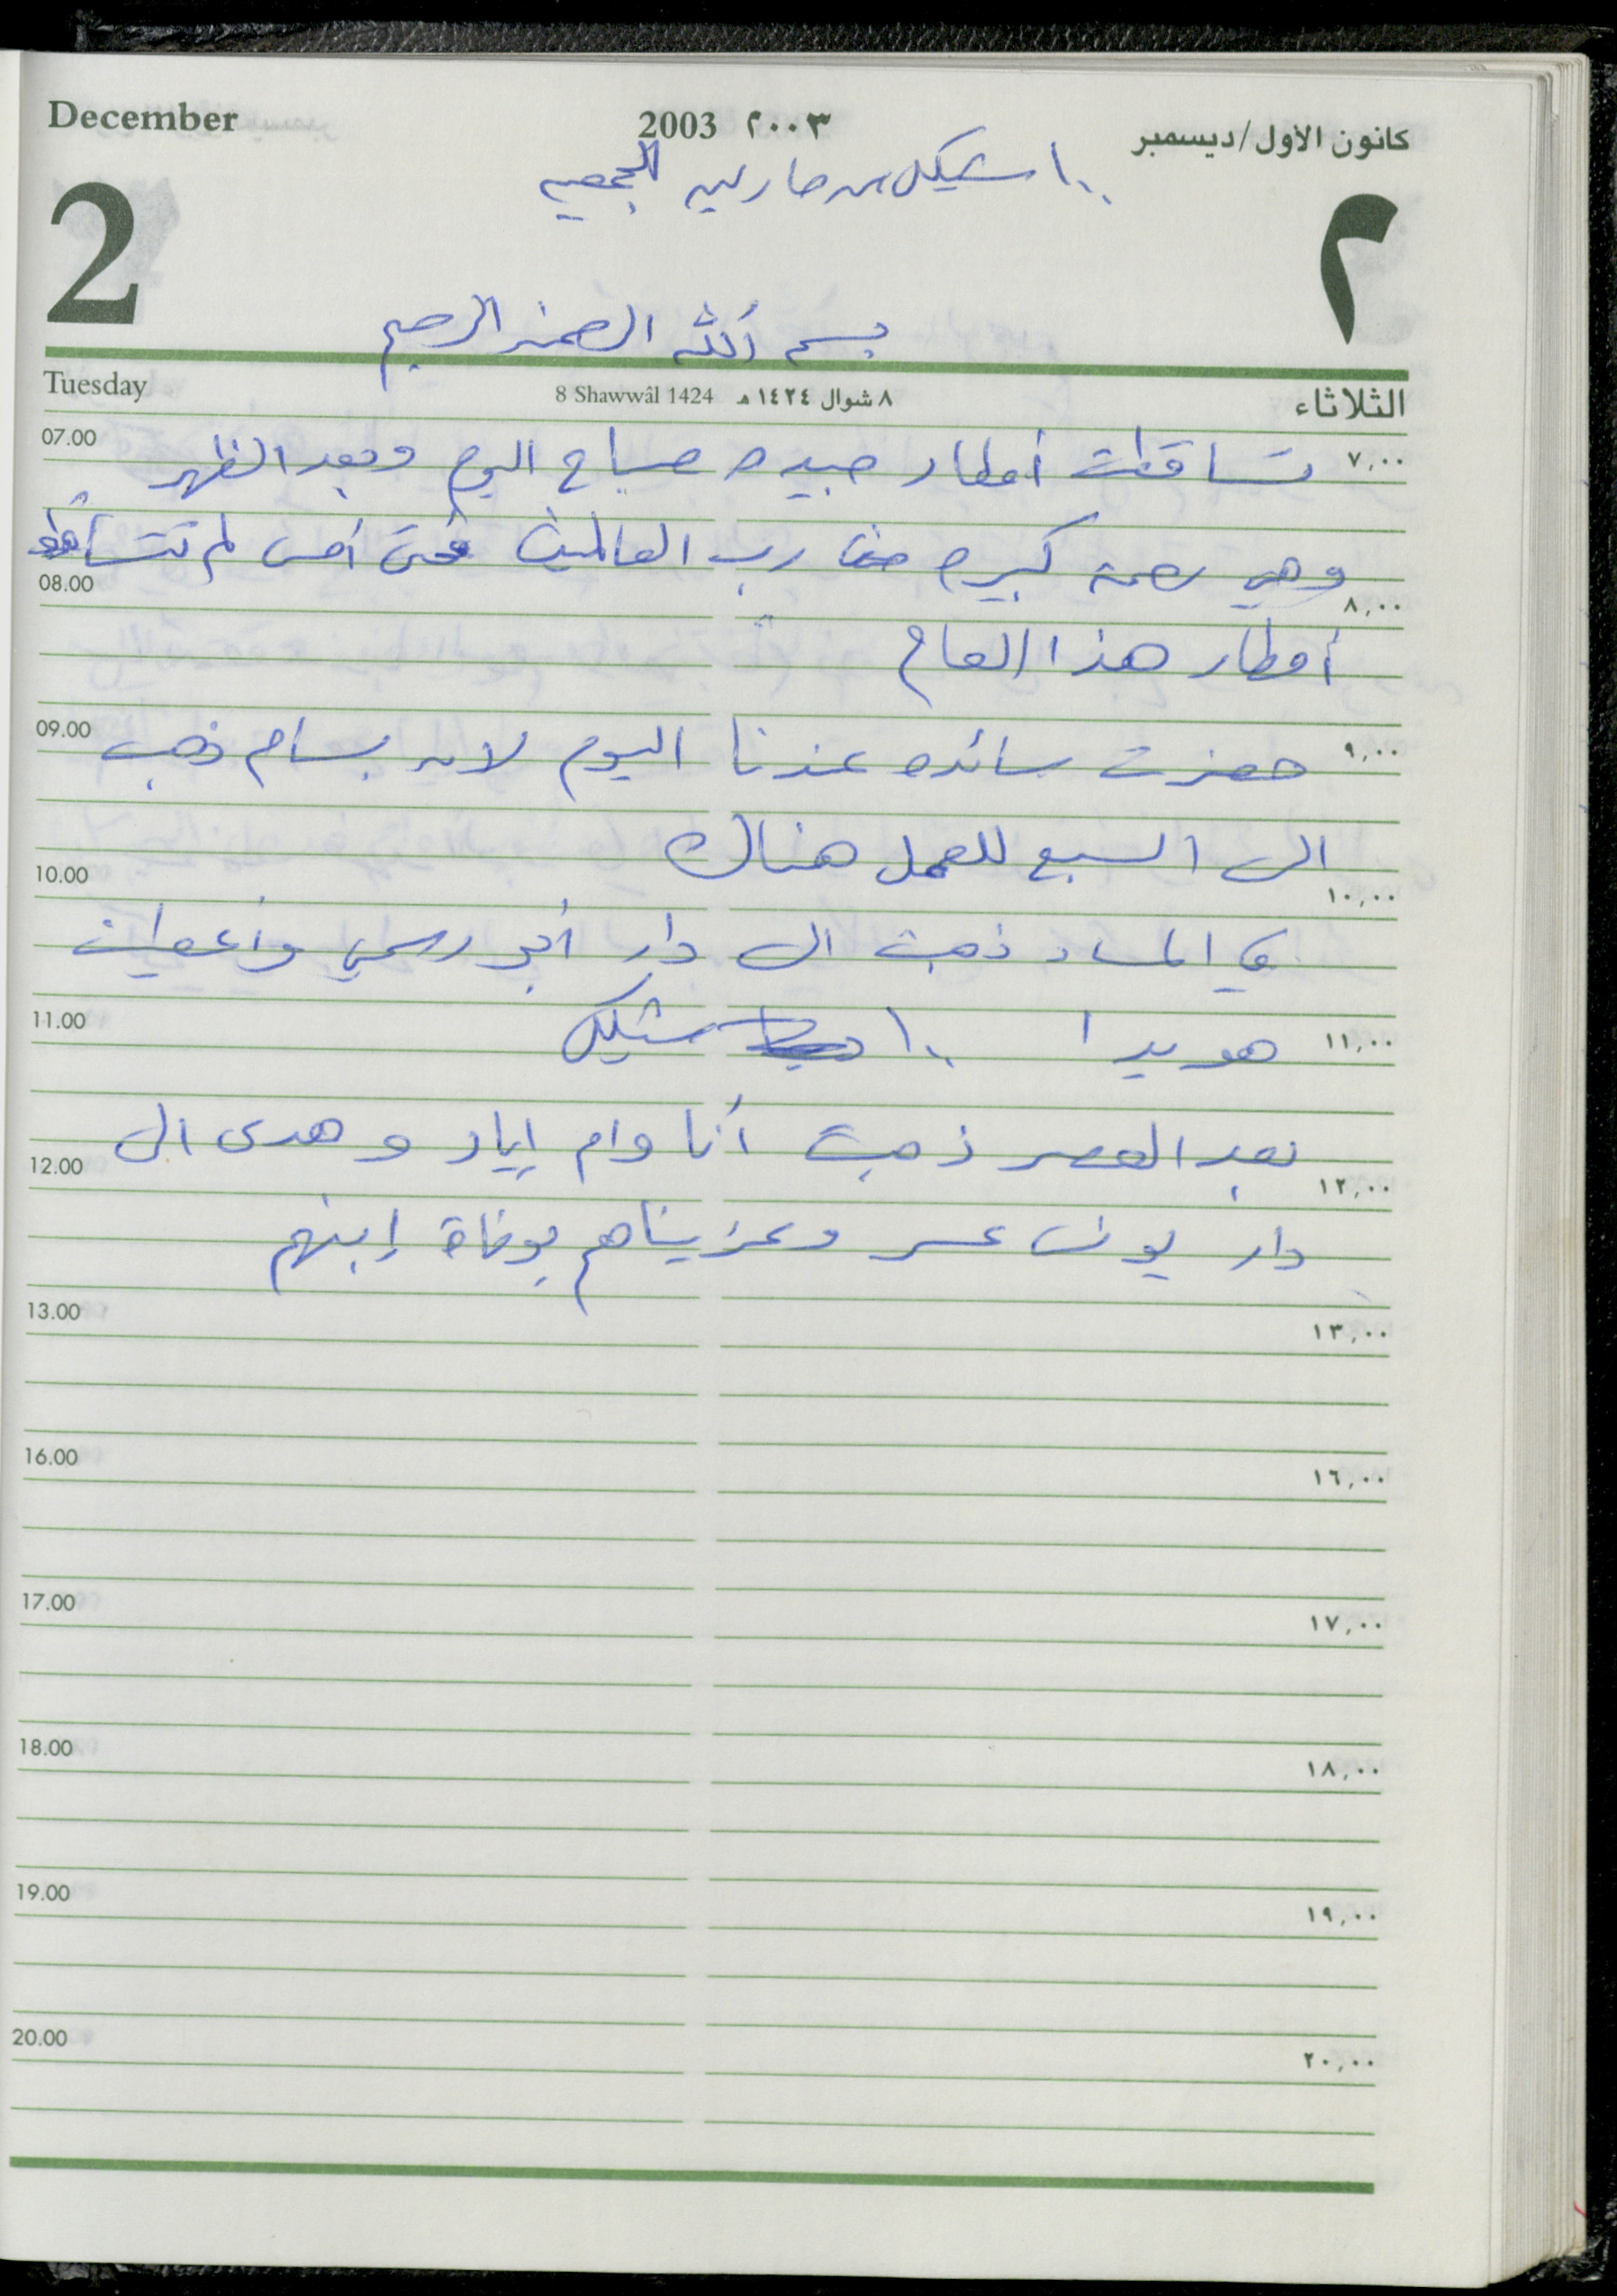 December 2003 ٢٠٠٣ كانون الأول/ديسمبر
١٠٠ شيكل من مارلين للجمعيه
2 ٢
بسم الله الرحمن الرحيم
Tuesday 8 Shawwâl 1424 ٨ شوال ١٤٢٤ هـ الثلاثاء
07.00 تساقطت أمطار جيده صباح اليوم وبعد الظهر ٧,٠٠
وهي رحمة كبيره من رب العالمين فحتى أمس لم تتساقط
08.00 ٨,٠٠
أمطار هذا العام
09.00 حضرت سائده عندنا اليوم لان بسام ذهب ٩,٠٠
الى السبع للعمل هناك
10.00 ١٠,٠٠
في المساء ذهبت الى دار أبو رسمي وأعطيت
11.00 هويدا ١٠٠ شيكل ١١,٠٠
بعد العصر ذهبت أنا وام إياد وهدى الى
12.00 ١٢,٠٠
دار يونس عسر وعزيناهم بوفاة إبنهم
13.00 ١٣,٠٠
16.00 ١٦,٠٠
17.00 ١٧,٠٠
18.00 ١٨,٠٠
19.00 ١٩,٠٠
20.00 ٢٠,٠٠